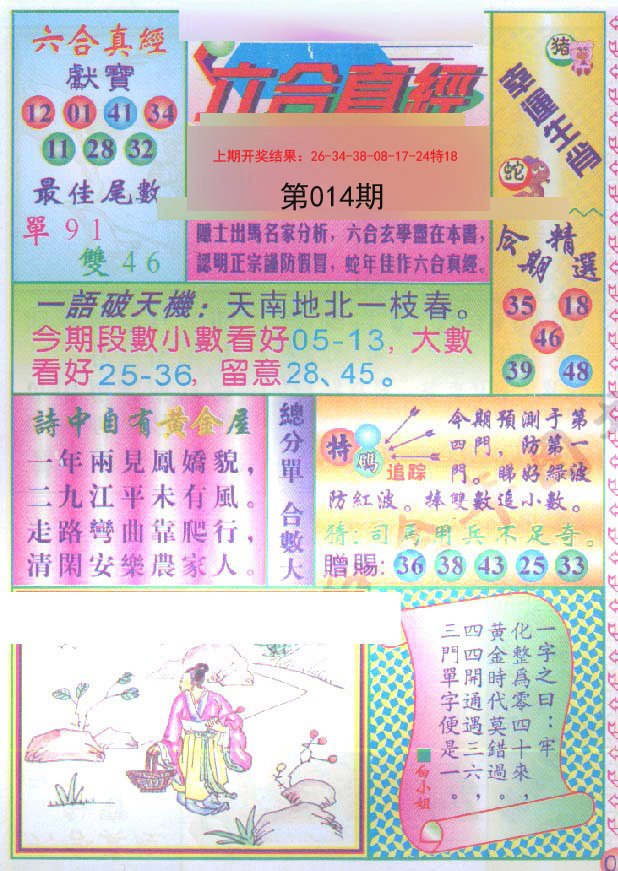 六合真經
獻寶
12 01 41 34
11 28 32
最佳尾數
單91
雙46
六合真經
上期开奖结果：26-34-38-08-17-24特18
第014期
隱士出馬名家分析，六合玄學盡在本書，
認明正宗謹防假冒，蛇年佳作六合真經。
豬
蛇
今期精選
35 18
46
39 48
一語破天機：天南地北一枝春。
今期段數小數看好05-13，大數
看好25-36，留意28、45。
詩中自有黃金屋
一年兩見鳳嬌貌，
二九江平未有風。
走路彎曲靠爬行，
清閑安樂農家人。
總分單 合數大
特碼
追踪
今期預測于第
四門，防第一
門。睇好綠波
防紅波。捧雙數追小數。
猜：司馬用兵不足奇。
贈賜：36 38 43 25 33
一字之曰：牢
化整爲零四十來，
黃金時代莫錯過。
四四開通遇三六，
三門單字便是一。
白小姐